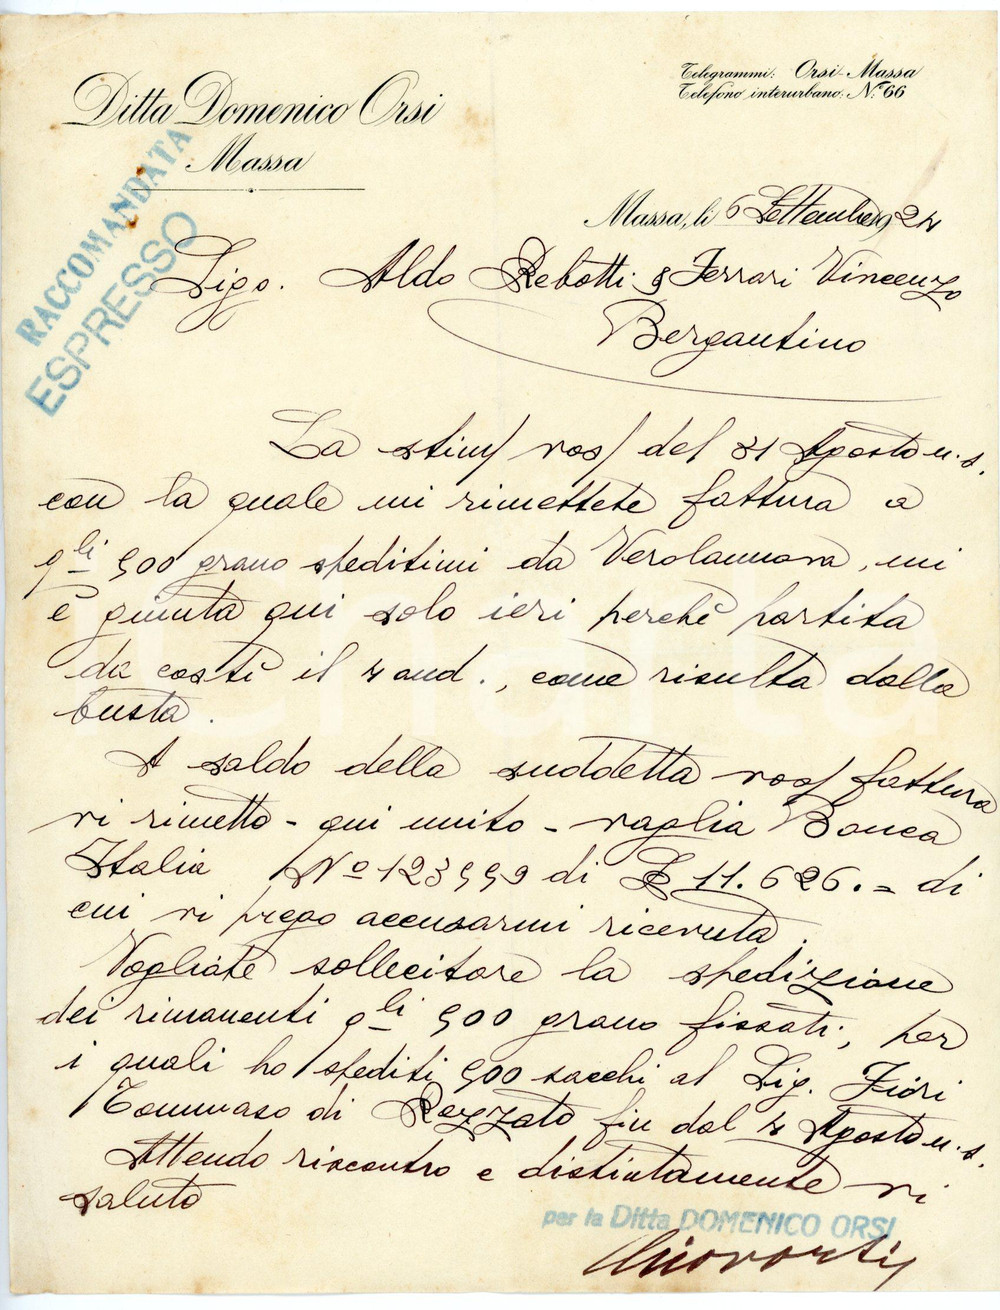 Ditta Domenico Orsi
Massa
Telegrammi: Orsi-Massa
Telefono interurbano: N.° 66
RACCOMANDATA
ESPRESSO
Massa, li 6 Settembre 1924
Sigg. Aldo Rebotti & Ferrari Vincenzo
Bergantino
La stim/ vos/ del 31 Agosto u. s.
con la quale mi rimettete fattura a
q.li 500 grano speditimi da Verolannova, mi
è giunta qui solo ieri perchè partita
da costì il 4 and., come risulta dalla
busta.
A saldo della suddetta vos/ fattura
vi rimetto - qui unito - vaglia Banca
Italia N° 123559 di £ 11.626.= di
cui vi prego accusarmi ricevuta.
Vogliate sollecitare la spedizione
dei rimanenti q.li 500 grano fissati, per
i quali ho spediti 500 sacchi al Sig. Fiori
Tommaso di Rezzato fin dal 4 Agosto u. s.
Attendo riscontro e distintamente vi
saluto
per la Ditta DOMENICO ORSI